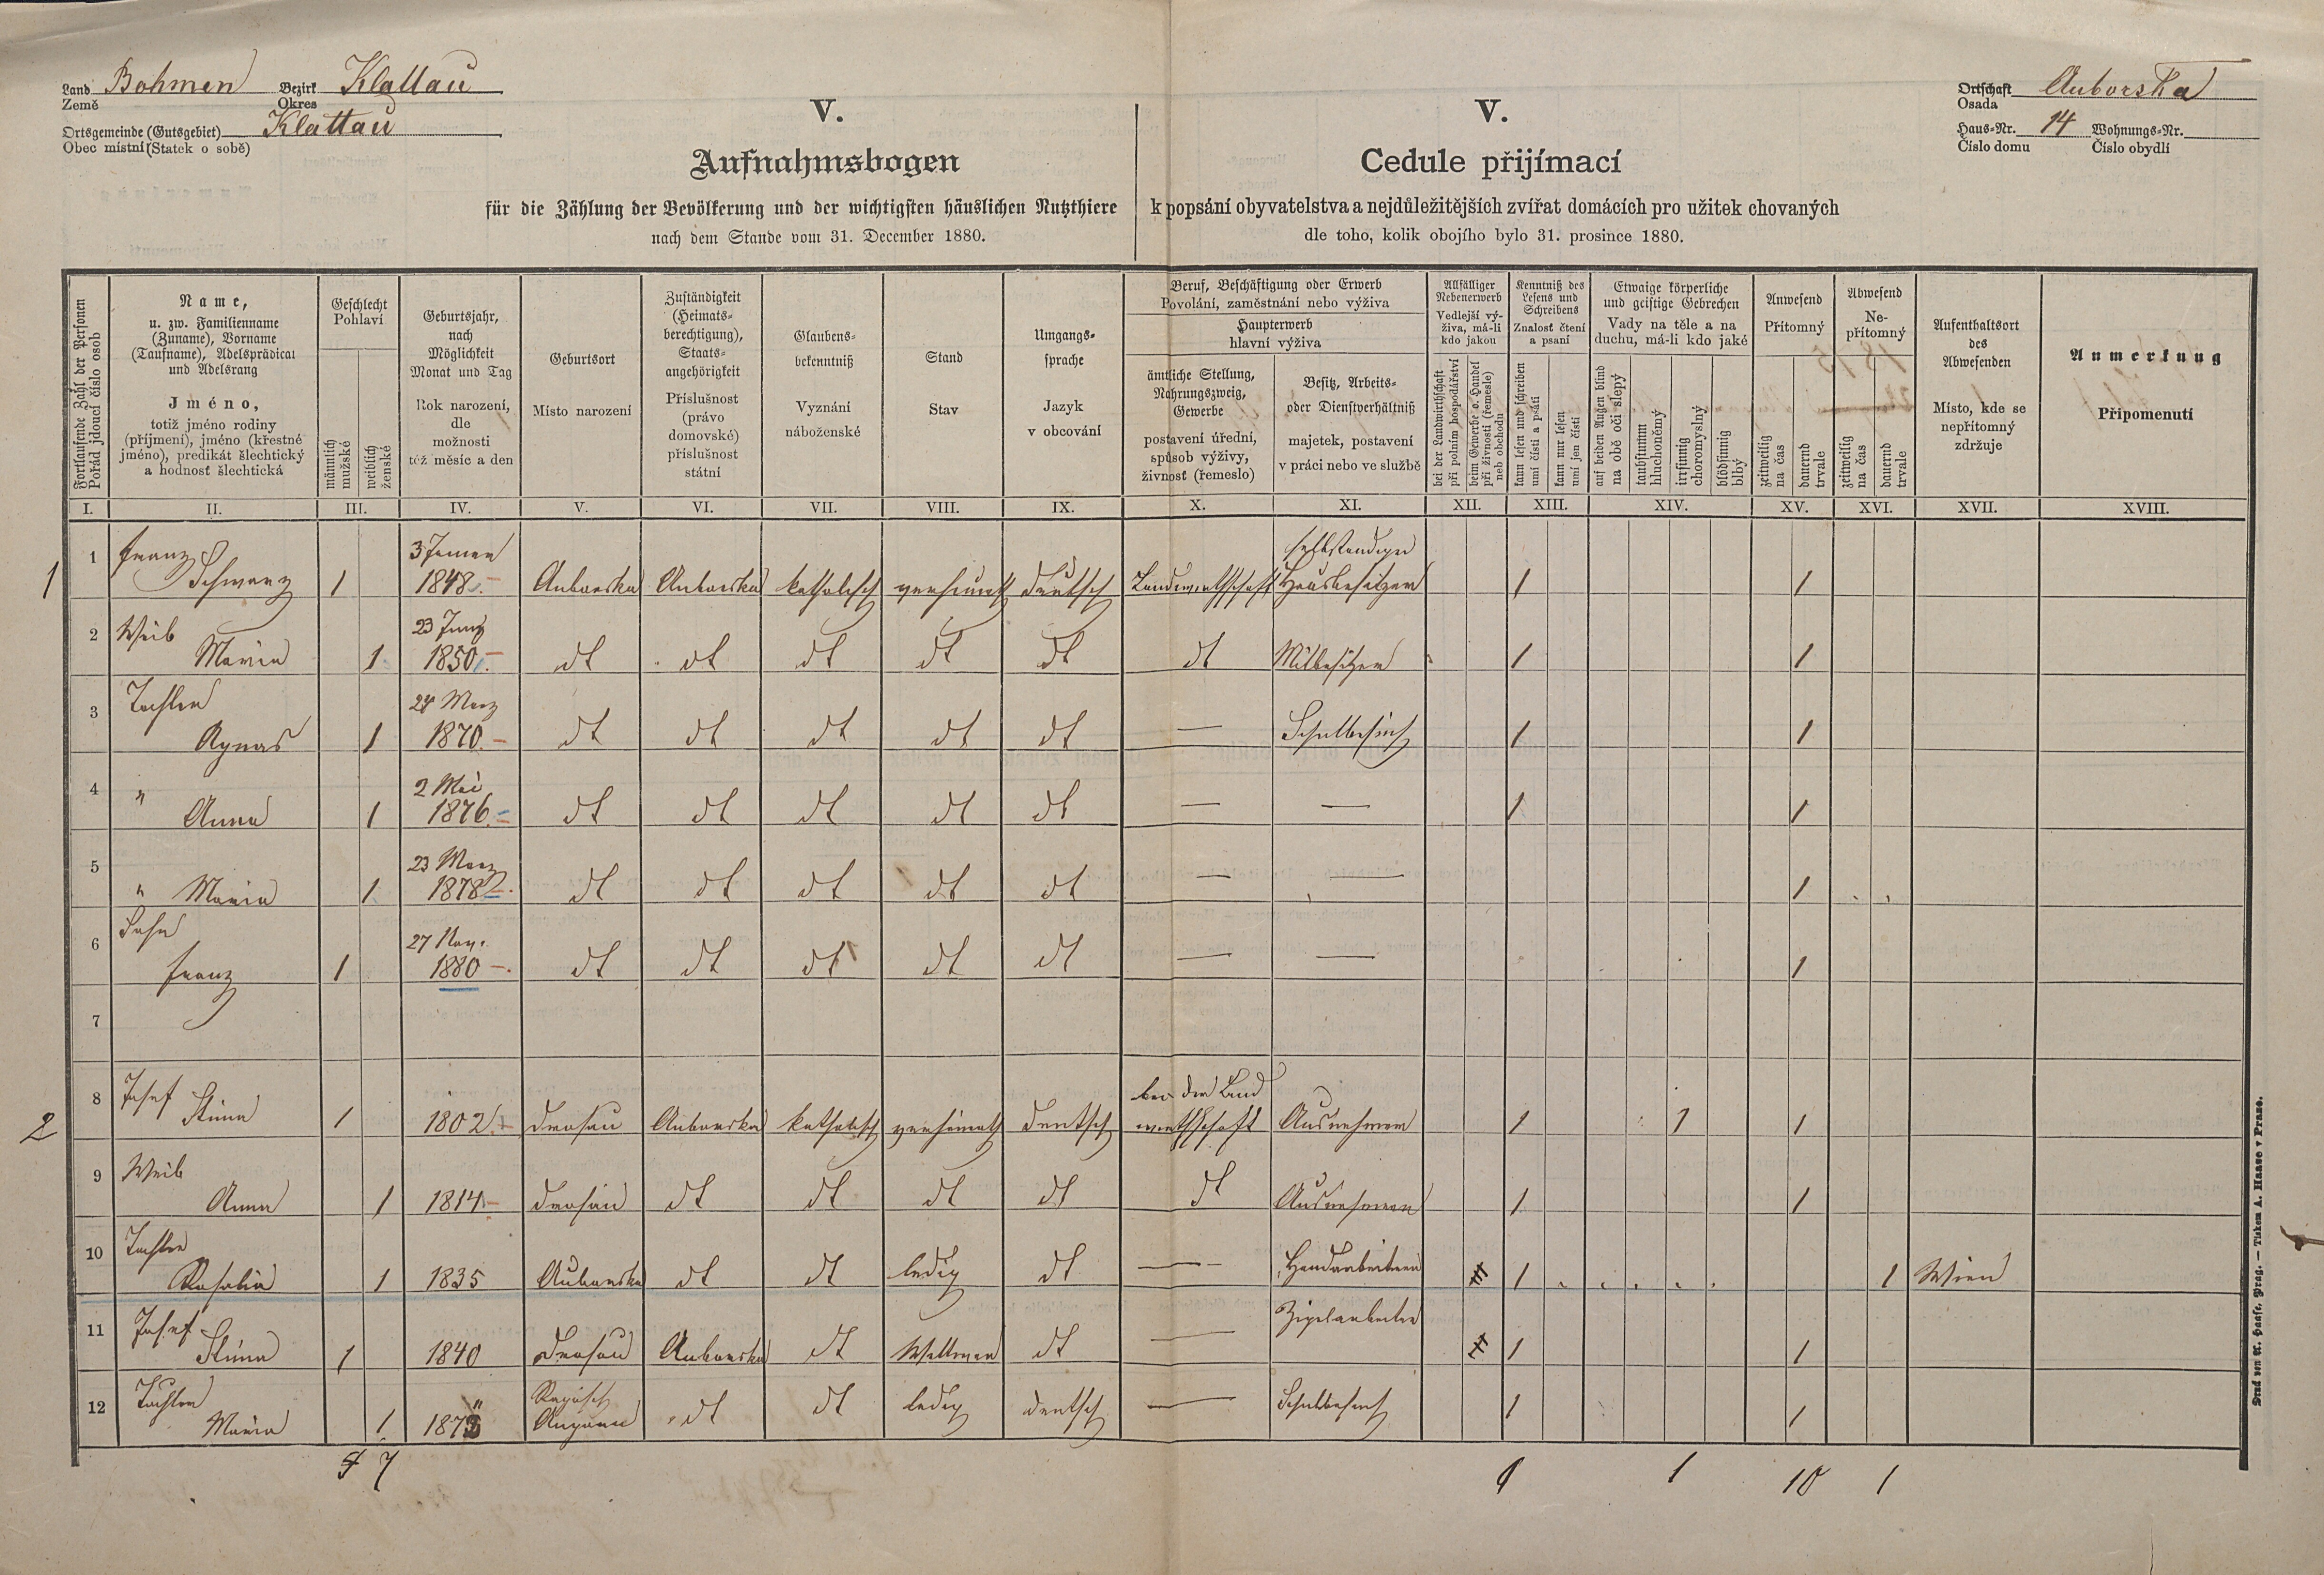 Land Bohmen Bezirk Klattau
Země Okres
Ortsgemeinde (Gutsgebiet) Klattau
Obec místní (Statek o sobě)
Ortschaft Auborska
Osada
Haus-Nr. 14 Wohnungs-Nr.
Číslo domu Číslo obydlí
V.
Aufnahmsbogen
für die Zählung der Bevölkerung und der wichtigsten häuslichen Nutzthiere
nach dem Stande vom 31. December 1880.
V.
Cedule přijímací
k popsání obyvatelstva a nejdůležitějších zvířat domácích pro užitek chovaných
dle toho, kolik obojího bylo 31. prosince 1880.
Fortlaufende Zahl der Personen
Pořád jdoucí číslo osob
Name,
u. zw. Familienname
(Zuname), Vorname
(Taufname), Adelsprädicat
und Adelsrang
Jméno,
totiž jméno rodiny
(příjmení), jméno (křestné
jméno), predikát šlechtický
a hodnosť šlechtická
Geschlecht
Pohlaví
männlich
mužské
weiblich
ženské
Geburtsjahr,
nach
Möglichkeit
Monat und Tag
Rok narození,
dle
možnosti
též měsíc a den
Geburtsort
Místo narození
Zuständigkeit
(Heimats-
berechtigung),
Staats-
angehörigkeit
Příslušnost
(právo
domovské)
příslušnost
státní
Glaubens-
bekenntniß
Vyznání
náboženské
Stand
Stav
Umgangs-
sprache
Jazyk
v obcování
Beruf, Beschäftigung oder Erwerb
Povolání, zaměstnání nebo výživa
Haupterwerb
hlavní výživa
ämtliche Stellung,
Nahrungszweig,
Gewerbe
postavení úřední,
spůsob výživy,
živnosť (řemeslo)
Besitz, Arbeits-
oder Dienstverhältniß
majetek, postavení
v práci nebo ve službě
Allfälliger
Nebenerwerb
Vedlejší vý-
živa, má-li
kdo jakou
bei der Landwirthschaft
při polním hospodářství
beim Gewerbe o. Handel
při živnosti (řemesle)
neb obchodu
Kenntniß des
Lesens und
Schreibens
Znalosť čtení
a psaní
kann lesen und schreiben
umí čísti a psáti
kann nur lesen
umí jen čísti
Etwaige körperliche
und geistige Gebrechen
Vady na těle a na
duchu, má-li kdo jaké
auf beiden Augen blind
na obě oči slepý
taubstumm
hluchoněmý
irrsinnig
choromyslný
blödsinnig
blbý
Anwesend
Přítomný
zeitweilig
na čas
dauernd
trvale
Abwesend
Ne-
přítomný
zeitweilig
na čas
dauernd
trvale
Aufenthaltsort
des
Abwesenden
Místo, kde se
nepřítomný
zdržuje
Anmerkung
Připomenutí
I. II. III. IV. V. VI. VII. VIII. IX. X. XI. XII. XIII. XIV. XV. XVI. XVII. XVIII.
1 Franz 3 Jenner selbständiger
1 Schwarz 1 1848 Auborska Auborska katholisch verheirath deutsch Landwirthschaft Hausbesitzer 1 1
2 Weib 23 Juny
Maria 1 1850 dt dt dt dt dt dt Mitbesitzer 1 1
3 Tochter 24 Marz
Agnes 1 1870 dt dt dt dt dt — Schulbesuch 1 1
4 " 2 Mai
Anna 1 1876 dt dt dt dt dt — — 1 1
5 23 Marz
" Maria 1 1878 dt dt dt dt dt — — 1
6 Sohn 27 Nov.
Franz 1 1880 dt dt dt dt dt — — 1
7
8 Josef bei der Land
2 1 1802 Drosau Auborska katholisch verheirath deutsch wirthschaft Ausnehmer 1 1 1
9 Weib
Anna 1 1814 Drosau dt dt dt dt dt Ausnehmerin 1 1
10 Tochter
Rosalia 1 1835 Auborska dt dt ledig dt — Handarbeiterin 1 1 Wien
11 Josef Zigelarbeiter
1 1840 Drosau Auborska dt Wittwer dt — 1 1
12 Tochter
Maria 1 dt dt ledig deutsch — Schulbesuch 1 1
7 1 10 1
Druck von A. Haase, Prag. — Tiskem A. Haase v Praze.